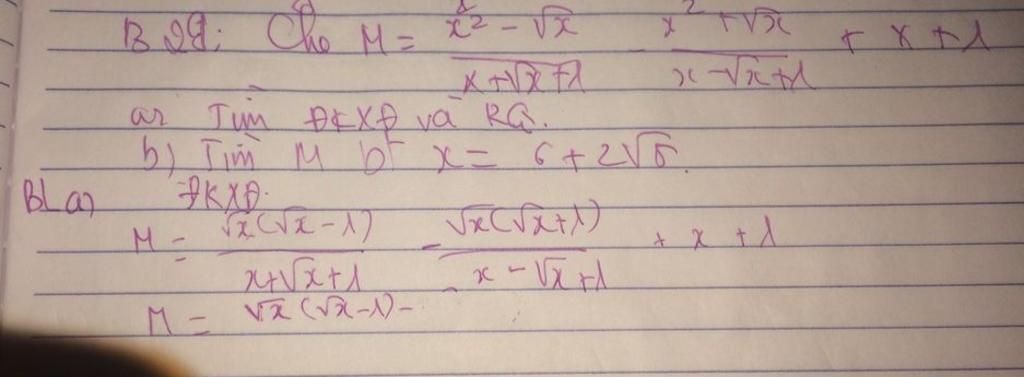 B29: Cho M = x² - √x / x + √x + 1 - x² + √x / x - √x + 1 + x + 1
a, Tìm ĐKXĐ và RG.
b) Tìm M bt x = 6 + 2√5.
BL a) ĐKXĐ:
M = √x(√x - 1) / x + √x + 1 - √x(√x + 1) / x - √x + 1 + x + 1
M = √x(√x - 1) -